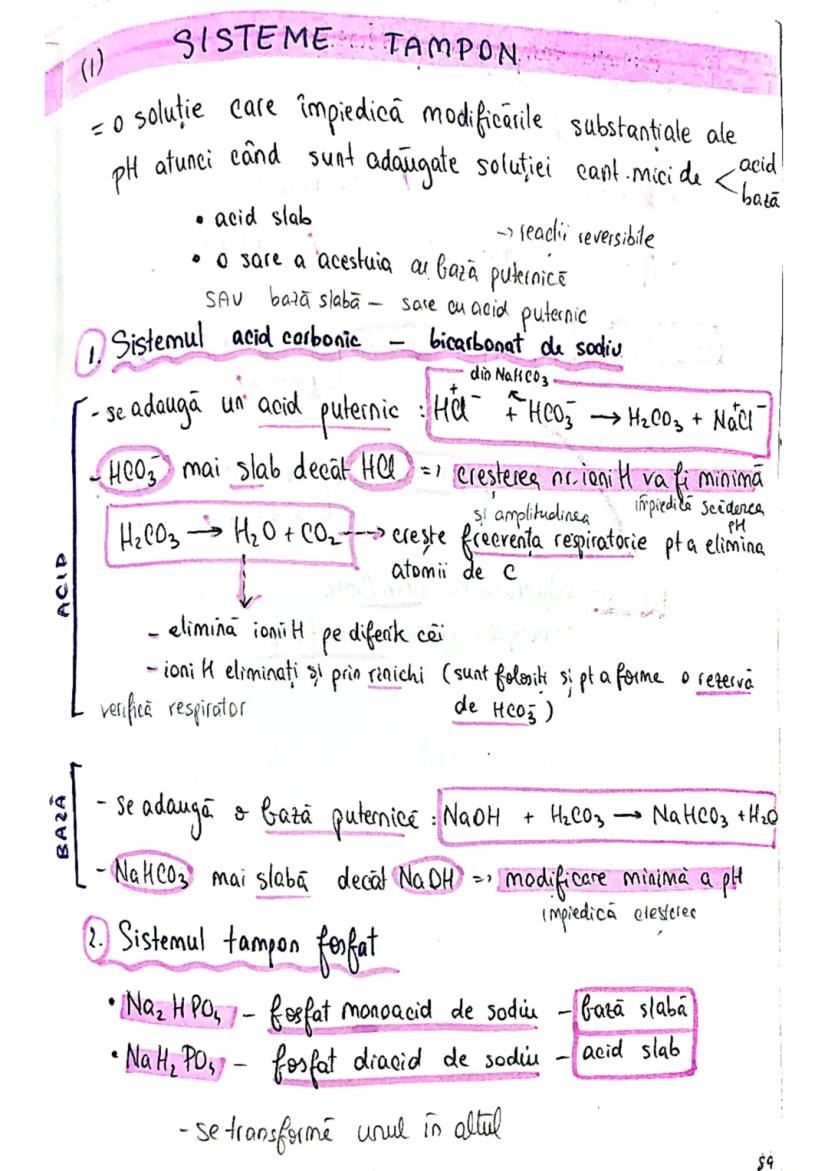 (1) SISTEME TAMPON
= o soluție care împiedică modificările substanțiale ale
pH atunci când sunt adăugate soluției cant. mici de < acid
bază
• acid slab
→ reacții reversibile
• o sare a acestuia cu bază puternică
SAU bază slabă – sare cu acid puternic
1. Sistemul acid carbonic – bicarbonat de sodiu
din NaHCO3
- se adaugă un acid puternic : H⁺Cl⁻ + HCO3⁻ → H2CO3 + Na⁺Cl⁻
- HCO3⁻ mai slab decât HCl => creșterea nr. ioni H va fi minimă
împiedică scăderea
pH
și amplitudinea
H2CO3 → H2O + CO2 → crește frecvența respiratorie pt a elimina
atomii de C
ACID
- elimină ionii H pe diferite căi
- ioni H eliminați și prin rinichi (sunt folosiți și pt a forma o rezervă
de HCO3⁻)
verifică respirator
BAZĂ
- se adaugă o bază puternică : NaOH + H2CO3 → NaHCO3 + H2O
- NaHCO3 mai slabă decât NaOH => modificare minimă a pH
împiedică creșterec
2. Sistemul tampon fosfat
• Na2HPO4 – fosfat monoacid de sodiu – bază slabă
• NaH2PO4 – fosfat diacid de sodiu – acid slab
- se transformă unul în altul